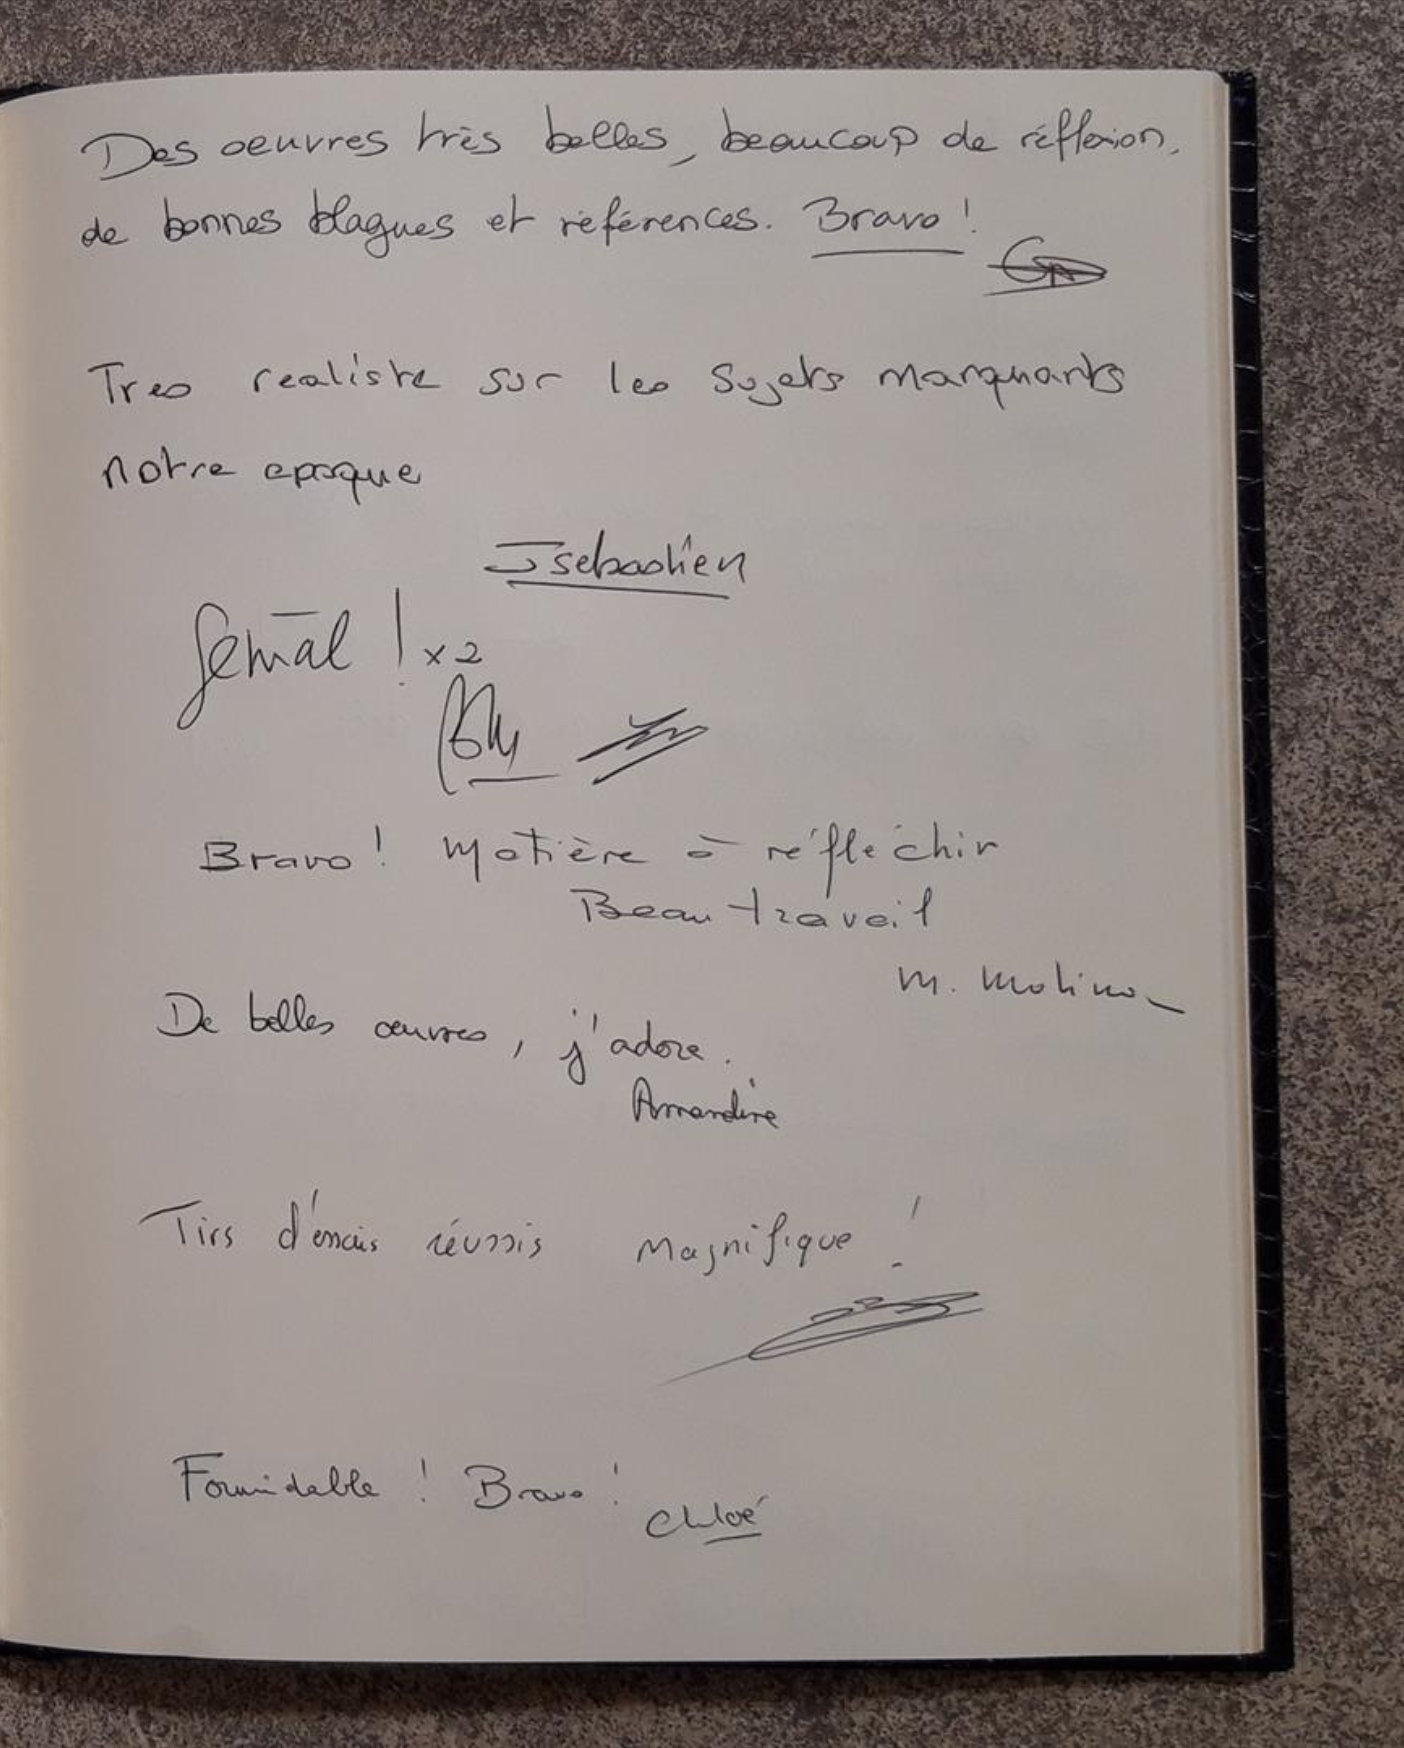 Des oeuvres très belles, beaucoup de réflexion,
de bonnes blagues et références. Bravo !
Tres realiste sur les sujets marquants
notre epoque
Jsebastien
Génial ! x2
Bravo ! Matière à réfléchir
Beau travail
M. Molina
De belles œuvres, j'adore.
Amandine
Tirs d'essais réussis Magnifique !
Formidable ! Bravo !
Chloé